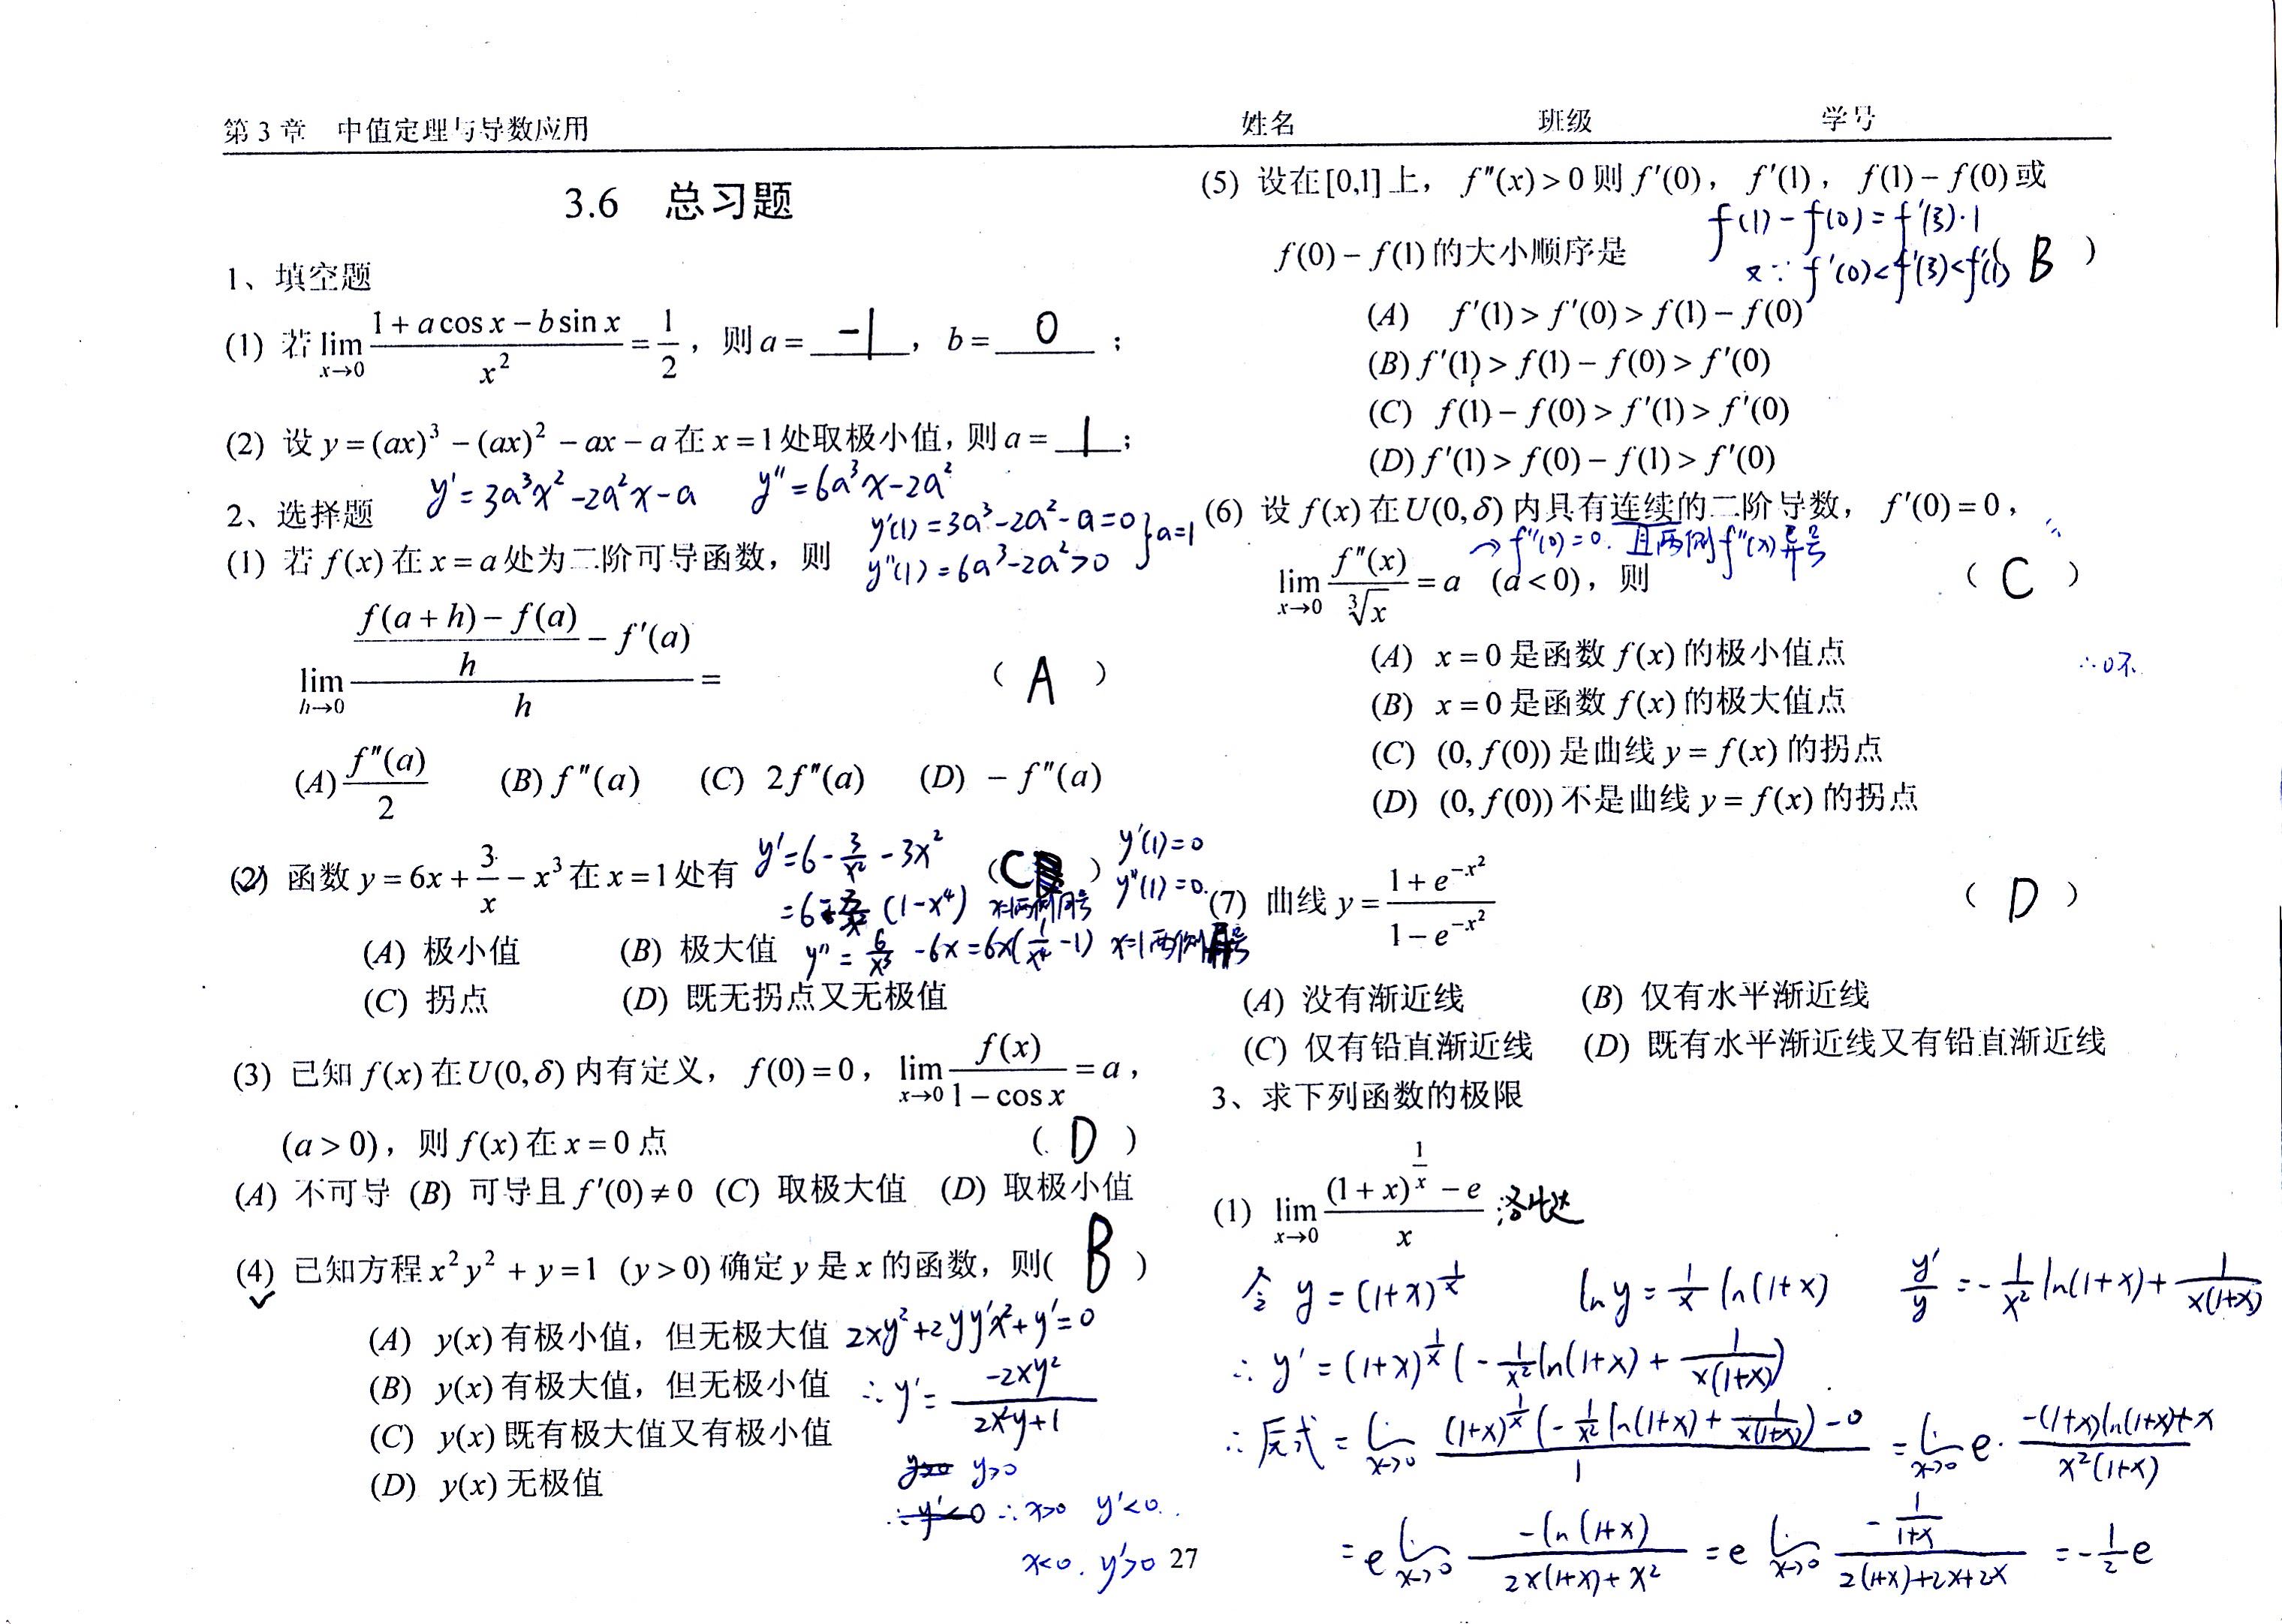 第 3 章　中值定理与导数应用
姓名　班级　学号
3.6　总习题
1、填空题
(1) 若 lim_{x→0} (1 + a cos x − b sin x)/x² = 1/2，则 a = -1，b = 0；
(2) 设 y = (ax)³ − (ax)² − ax − a 在 x = 1 处取极小值，则 a = 1；
y' = 3a³x² − 2a²x − a　y'' = 6a³x − 2a²
2、选择题
y'(1) = 3a³ − 2a² − a = 0
y''(1) = 6a³ − 2a² > 0 } a=1
(1) 若 f(x) 在 x = a 处为二阶可导函数，则
lim_{h→0} ((f(a + h) − f(a))/h − f'(a))/h = （ A ）
(A) f''(a)/2　(B) f''(a)　(C) 2f''(a)　(D) − f''(a)
(2) 函数 y = 6x + 3/x − x³ 在 x = 1 处有（ C ）
y' = 6 − 3/x² − 3x²
y'(1) = 0
y''(1) = 0.
y'' = 6/x³ − 6x = 6x(1/x⁴ − 1) x=1两侧异号
(A) 极小值　(B) 极大值
(C) 拐点　(D) 既无拐点又无极值
(3) 已知 f(x) 在 U(0,δ) 内有定义，f(0) = 0，lim_{x→0} f(x)/(1 − cos x) = a，
(a > 0)，则 f(x) 在 x = 0 点（ D ）
(A) 不可导 (B) 可导且 f'(0) ≠ 0 (C) 取极大值 (D) 取极小值
(4) 已知方程 x²y² + y = 1 (y > 0) 确定 y 是 x 的函数，则( B )
(A) y(x) 有极小值，但无极大值
(B) y(x) 有极大值，但无极小值
(C) y(x) 既有极大值又有极小值
(D) y(x) 无极值
2xy² + 2yy'x² + y' = 0
∴ y' = −2xy²/(2x²y+1)
y>0
∴ x>0 y'<0.
x<0. y'>0
27
(5) 设在[0,1]上，f''(x) > 0 则 f'(0)，f'(1)，f(1) − f(0) 或
f(0) − f(1) 的大小顺序是（ B ）
f(1) − f(0) = f'(ξ)·1
又∵ f'(0) < f'(ξ) < f'(1)
(A) f'(1) > f'(0) > f(1) − f(0)
(B) f'(1) > f(1) − f(0) > f'(0)
(C) f(1) − f(0) > f'(1) > f'(0)
(D) f'(1) > f(0) − f(1) > f'(0)
(6) 设 f(x) 在 U(0,δ) 内具有连续的二阶导数，f'(0) = 0，
→ f''(0) = 0. 且两侧 f''(x) 异号
lim_{x→0} f''(x)/∛x = a (a < 0)，则（ C ）
(A) x = 0 是函数 f(x) 的极小值点
∴0不
(B) x = 0 是函数 f(x) 的极大值点
(C) (0, f(0)) 是曲线 y = f(x) 的拐点
(D) (0, f(0)) 不是曲线 y = f(x) 的拐点
(7) 曲线 y = (1 + e^{−x²})/(1 − e^{−x²})（ D ）
(A) 没有渐近线　(B) 仅有水平渐近线
(C) 仅有铅直渐近线　(D) 既有水平渐近线又有铅直渐近线
3、求下列函数的极限
(1) lim_{x→0} ((1 + x)^{1/x} − e)/x ; 洛比达
令 y = (1+x)^{1/x}　ln y = 1/x ln(1+x)　y'/y = −1/x² ln(1+x) + 1/(x(1+x))
∴ y' = (1+x)^{1/x} (−1/x² ln(1+x) + 1/(x(1+x)))
∴ 原式 = lim_{x→0} ((1+x)^{1/x} (−1/x² ln(1+x) + 1/(x(1+x))) − 0)/1 = lim_{x→0} e · (−(1+x)ln(1+x)+x)/(x²(1+x))
= e lim_{x→0} −ln(1+x)/(2x(1+x)+x²) = e lim_{x→0} (−1/(1+x))/(2(1+x)+2x+2x) = −1/2 e